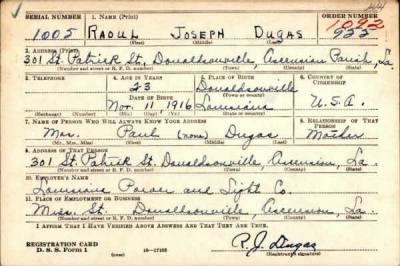 44
SERIAL NUMBER 1. NAME (Print) ORDER NUMBER
1005 RAOUL JOSEPH DUGAS 1092
(First) (Middle) (Last) 933
2. ADDRESS (Print)
301 St. Patrick St. Donaldsonville, Ascension Parish, La.
(Number and street or R. F. D. number) (Town) (County) (State)
3. TELEPHONE 4. AGE IN YEARS 5. PLACE OF BIRTH 6. COUNTRY OF CITIZENSHIP
23 Donaldsonville
DATE OF BIRTH (Town or county)
Nov. 11 1916 Louisiana U.S.A.
(Exchange) (Number) (Mo.) (Day) (Yr.) (State or country)
7. NAME OF PERSON WHO WILL ALWAYS KNOW YOUR ADDRESS 8. RELATIONSHIP OF THAT PERSON
Mrs. Paul (none) Dugas Mother
(Mr., Mrs., Miss) (First) (Middle) (Last)
9. ADDRESS OF THAT PERSON
301 St. Patrick St. Donaldsonville, Ascension, La.
(Number and street or R. F. D. number) (Town) (County) (State)
10. EMPLOYER'S NAME
Louisiana Power and Light Co.
11. PLACE OF EMPLOYMENT OR BUSINESS
Miss. St. Donaldsonville, Ascension, La.
(Number and street or R. F. D. number) (Town) (County) (State)
I AFFIRM THAT I HAVE VERIFIED ABOVE ANSWERS AND THAT THEY ARE TRUE.
REGISTRATION CARD R. J. Dugas
D. S. S. Form 1 16-17105 (Registrant's signature)